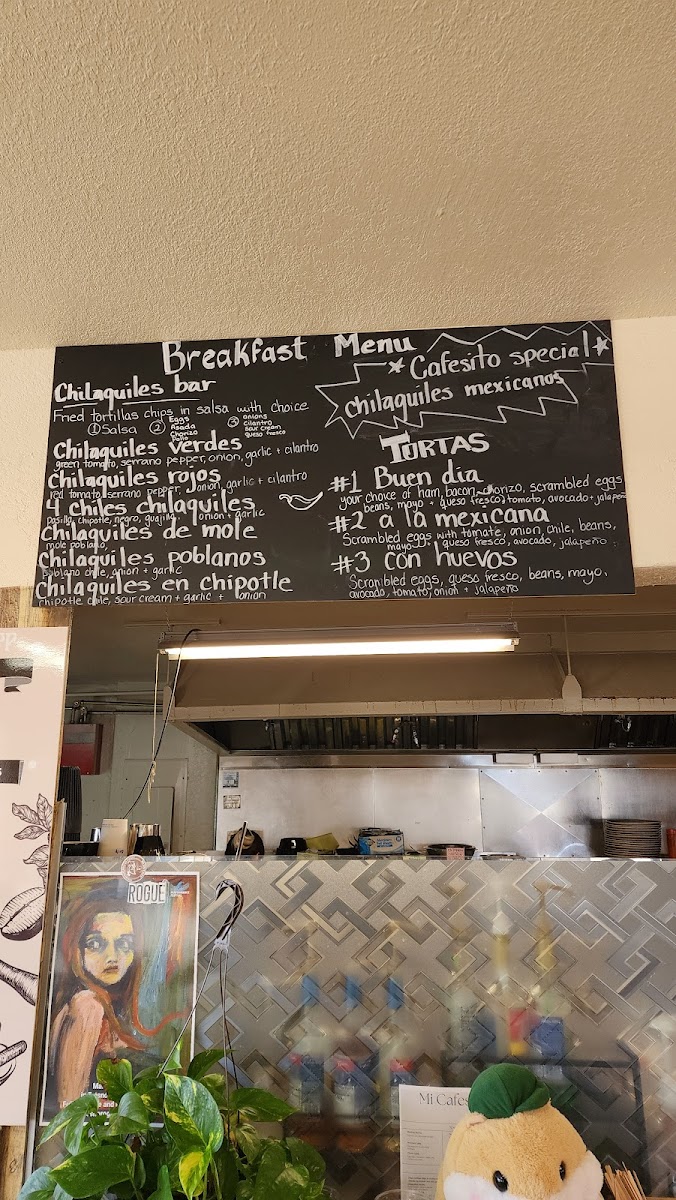 Breakfast Menu
Chilaquiles bar
Fried tortillas chips in salsa with choice
① Salsa
② Eggs
Asada
Chorizo
③ onions
Cilantro
sour cream
queso fresco
Chilaquiles verdes
green tomato, serrano pepper, onion, garlic + cilantro
Chilaquiles rojos
red tomato, serrano pepper, onion, garlic + cilantro
4 chiles chilaquiles
Pasilla, chipotle, negro, guajillo, onion + garlic
Chilaquiles de mole
mole poblano,
Chilaquiles poblanos
poblano chile, onion + garlic
Chilaquiles en chipotle
chipotle chile, sour cream + garlic + onion
*Cafesito special*
chilaquiles mexicanos
TORTAS
#1 Buen dia
your choice of ham, bacon, chorizo, scrambled eggs
beans, mayo + queso fresco, tomato, avocado + jalapeño
#2 a la mexicana
Scrambled eggs with tomate, onion, chile, beans,
mayo, queso fresco, avocado, jalapeño
#3 con huevos
Scrambled eggs, queso fresco, beans, mayo,
avocado, tomato, onion + jalapeño
ROGUE
Mi Cafes